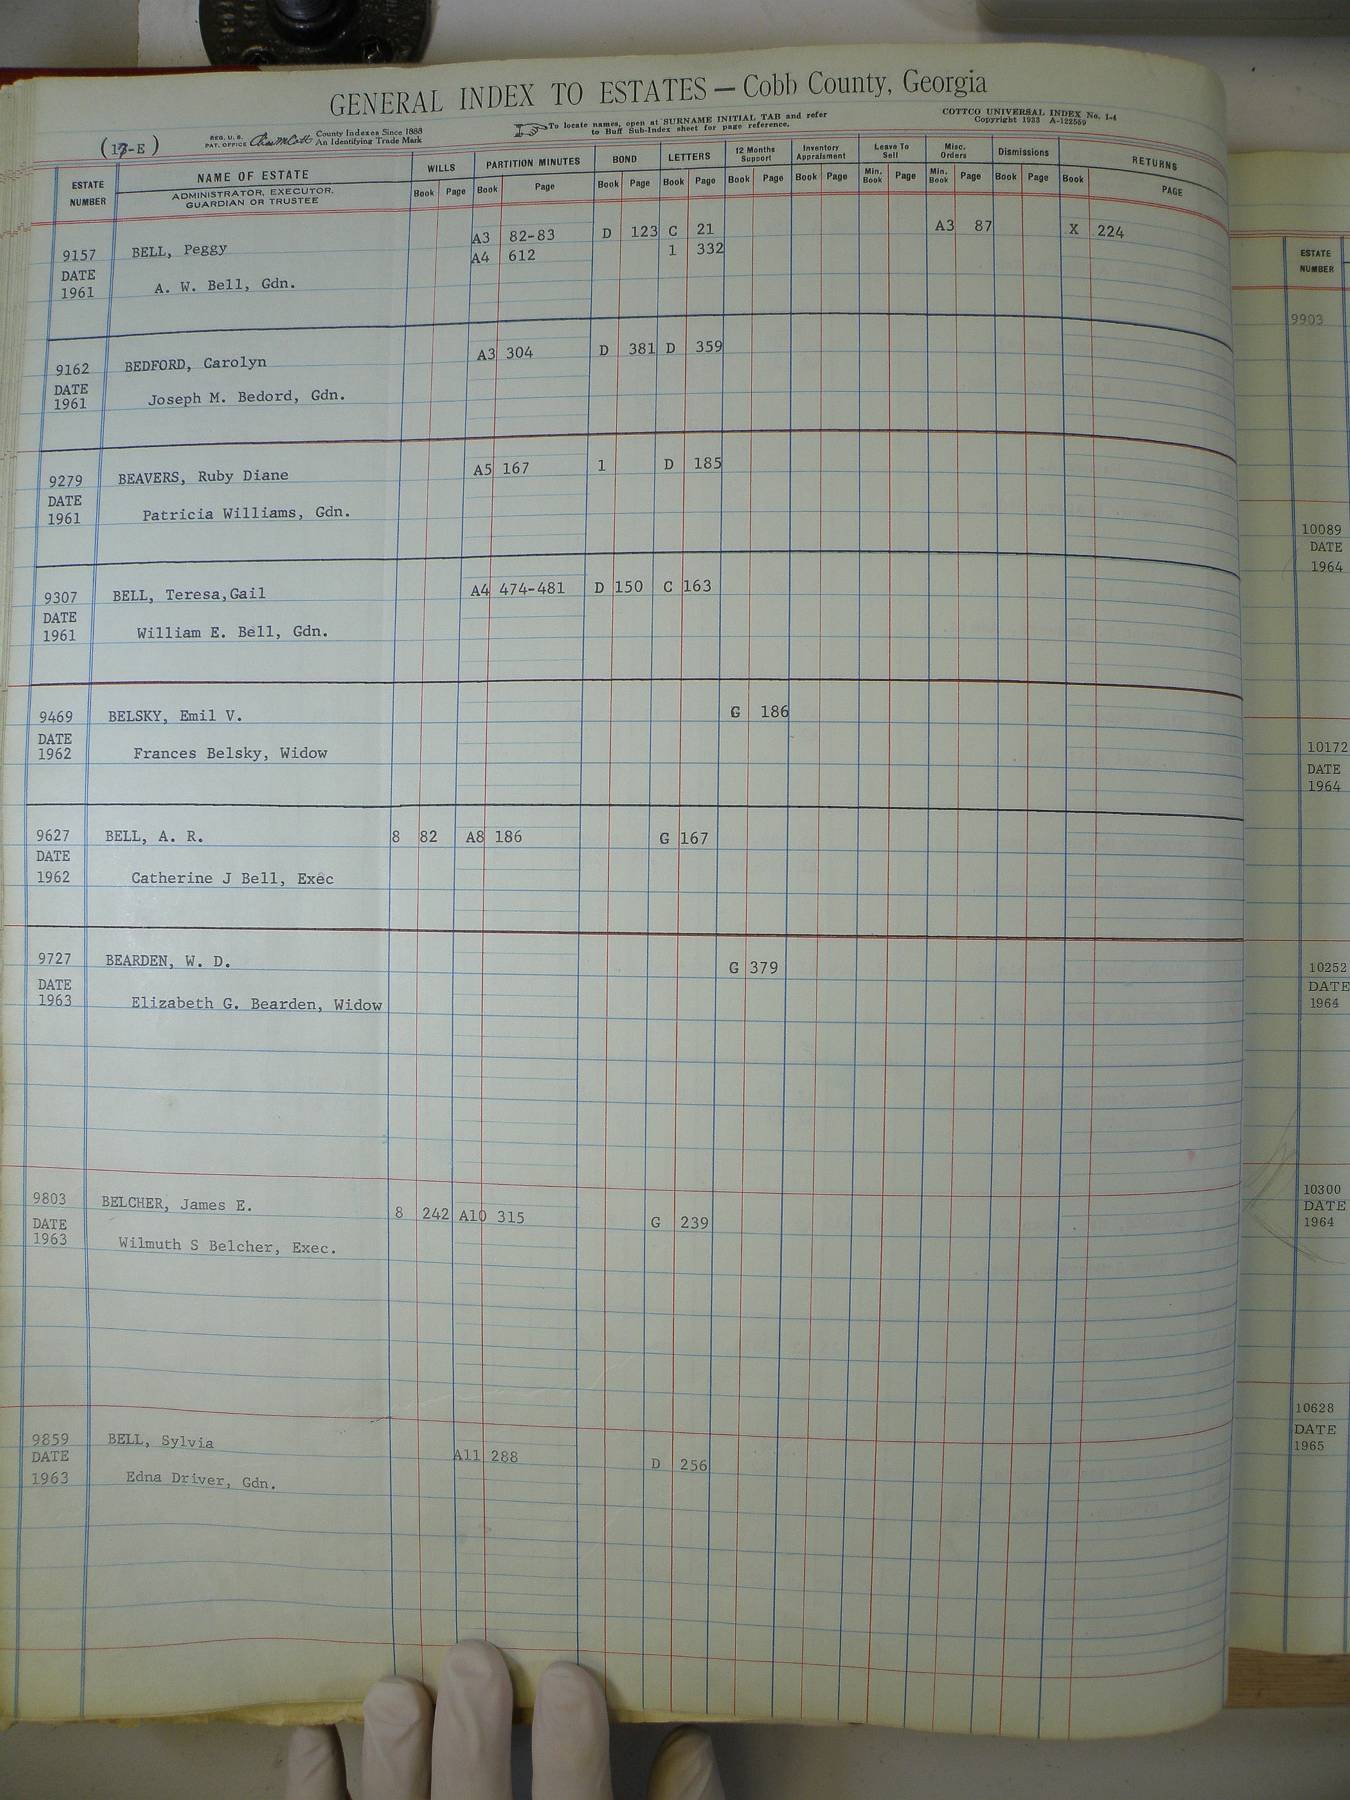 GENERAL INDEX TO ESTATES — Cobb County, Georgia
(17-E)
REG. U. S. PAT. OFFICE County Indexes Since 1888 An Identifying Trade Mark
To locate names, open at SURNAME INITIAL TAB and refer to Buff Sub-Index sheet for page reference.
COTTCO UNIVERSAL INDEX No. 1-4
Copyright 1933 A-122559
ESTATE NUMBER NAME OF ESTATE WILLS PARTITION MINUTES BOND LETTERS 12 Months Support Inventory Appraisment Leave To Sell Misc. Orders Dismissions RETURNS
ADMINISTRATOR, EXECUTOR, GUARDIAN OR TRUSTEE Book Page Book Page Book Page Book Page Book Page Book Page Min. Book Page Min. Book Page Book Page Book PAGE
A3 82-83 D 123 C 21 A3 87 X 224
9157 BELL, Peggy A4 612 1 332
DATE
1961 A. W. Bell, Gdn.
9162 BEDFORD, Carolyn A3 304 D 381 D 359
DATE
1961 Joseph M. Bedord, Gdn.
9279 BEAVERS, Ruby Diane A5 167 1 D 185
DATE
1961 Patricia Williams, Gdn.
9307 BELL, Teresa,Gail A4 474-481 D 150 C 163
DATE
1961 William E. Bell, Gdn.
9469 BELSKY, Emil V. G 186
DATE
1962 Frances Belsky, Widow
9627 BELL, A. R. 8 82 A8 186 G 167
DATE
1962 Catherine J Bell, Exec
9727 BEARDEN, W. D. G 379
DATE
1963 Elizabeth G. Bearden, Widow
9803 BELCHER, James E. 8 242 A10 315 G 239
DATE
1963 Wilmuth S Belcher, Exec.
9859 BELL, Sylvia A11 288 D 256
DATE
1963 Edna Driver, Gdn.
ESTATE
NUMBER
9903
10089
DATE
1964
10172
DATE
1964
10252
DATE
1964
10300
DATE
1964
10628
DATE
1965